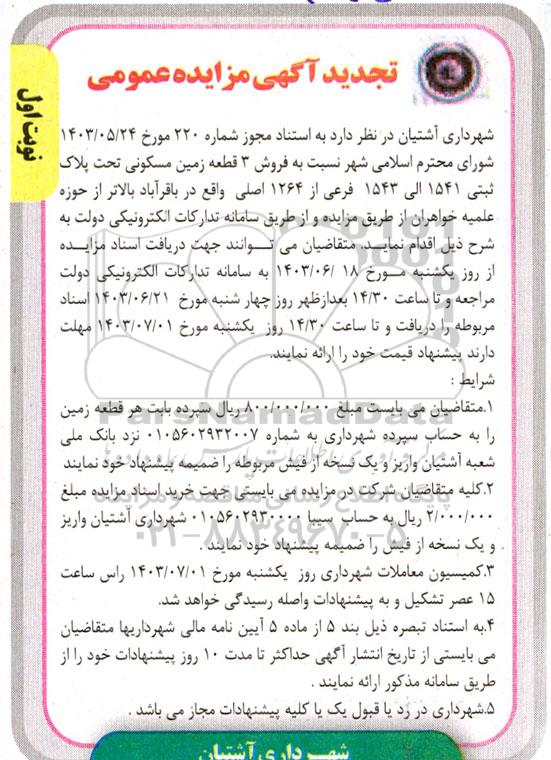 تجدید آگهی مزایده عمومی
نوبت اول
شهرداری آشتیان در نظر دارد به استناد مجوز شماره ۲۲۰ مورخ ۱۴۰۳/۰۵/۲۴
شورای محترم اسلامی شهر نسبت به فروش ۳ قطعه زمین مسکونی تحت پلاک
ثبتی ۱۵۴۱ الی ۱۵۴۳ فرعی از ۱۲۶۴ اصلی واقع در باقرآباد بالاتر از حوزه
علمیه خواهران از طریق مزایده و از طریق سامانه تدارکات الکترونیکی دولت به
شرح ذیل اقدام نماید. متقاضیان می توانند جهت دریافت اسناد مزایده
از روز یکشنبه مورخ ۱۸ /۱۴۰۳/۰۶ به سامانه تدارکات الکترونیکی دولت
مراجعه و تا ساعت ۱۴/۳۰ بعدازظهر روز چهار شنبه مورخ ۱۴۰۳/۰۶/۲۱ اسناد
مربوطه را دریافت و تا ساعت ۱۴/۳۰ روز یکشنبه مورخ ۱۴۰۳/۰۷/۰۱ مهلت
دارند پیشنهاد قیمت خود را ارائه نمایند.
شرایط :
۱.متقاضیان می بایست مبلغ ۸۰۰/۰۰۰/۰۰۰ ریال سپرده بابت هر قطعه زمین
را به حساب سپرده شهرداری به شماره ۰۱۰۵۶۰۲۹۳۲۰۰۷ نزد بانک ملی
شعبه آشتیان واریز و یک نسخه از فیش مربوطه را ضمیمه پیشنهاد خود نمایند
۲.کلیه متقاضیان شرکت در مزایده می بایستی جهت خرید اسناد مزایده مبلغ
۲/۰۰۰/۰۰۰ ریال به حساب سیبا ۰۱۰۵۶۰۲۹۳۰۰۰۰ شهرداری آشتیان واریز
و یک نسخه از فیش را ضمیمه پیشنهاد خود نمایند .
۳.کمیسیون معاملات شهرداری روز یکشنبه مورخ ۱۴۰۳/۰۷/۰۱ راس ساعت
۱۵ عصر تشکیل و به پیشنهادات واصله رسیدگی خواهد شد.
۴.به استناد تبصره ذیل بند ۵ از ماده ۵ آیین نامه مالی شهرداریها متقاضیان
می بایستی از تاریخ انتشار آگهی حداکثر تا مدت ۱۰ روز پیشنهادات خود را از
طریق سامانه مذکور ارائه نمایند .
۵.شهرداری در رد یا قبول یک یا کلیه پیشنهادات مجاز می باشد .
شهرداری آشتیان
ParsNamadData
۰۲۱-۸۸۳۴۹۶۷۰-۵